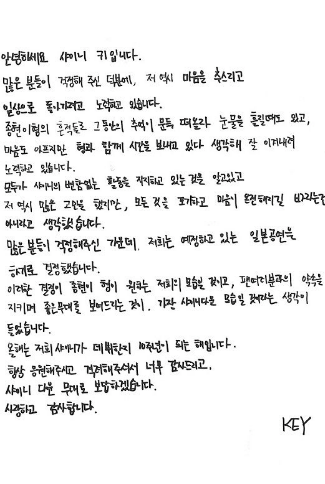 안녕하세요 샤이니 키입니다.
많은 분들이 걱정해 주신 덕분에, 저 역시 마음을 추스리고
일상으로 돌아가려고 노력하고 있습니다.
종현이형의 흔적들로 그동안의 추억이 문득 떠올라 눈물을 흘릴때도 있고,
마음도 아프지만 형과 함께 시간을 보내고 있다 생각해 잘 이겨내려
노력하고 있습니다.
모두가 샤이니의 변함없는 활동을 걱정하고 있는 것을 알고있고
저 역시 많은 고민을 했지만, 모든 것을 포기하고 마음이 온전해지길 바라는건
아니라고 생각했습니다.
많은 분들이 걱정해주신 가운데, 저희는 예정하고 있는 일본공연을
하기로 결정했습니다.
이러한 결정이 종현이 형이 원하는 저희의 모습일 것이고, 팬여러분과의 약속을
지키며 좋은무대를 보여드리는 것이, 가장 샤이니다운 모습일 것이라는 생각이
들었습니다.
올해는 저희 샤이니가 데뷔한지 10주년이 되는 해입니다.
항상 응원해주시고 격려해주셔서 너무 감사드리고,
샤이니 다운 무대로 보답하겠습니다.
사랑하고 감사합니다.
KEY